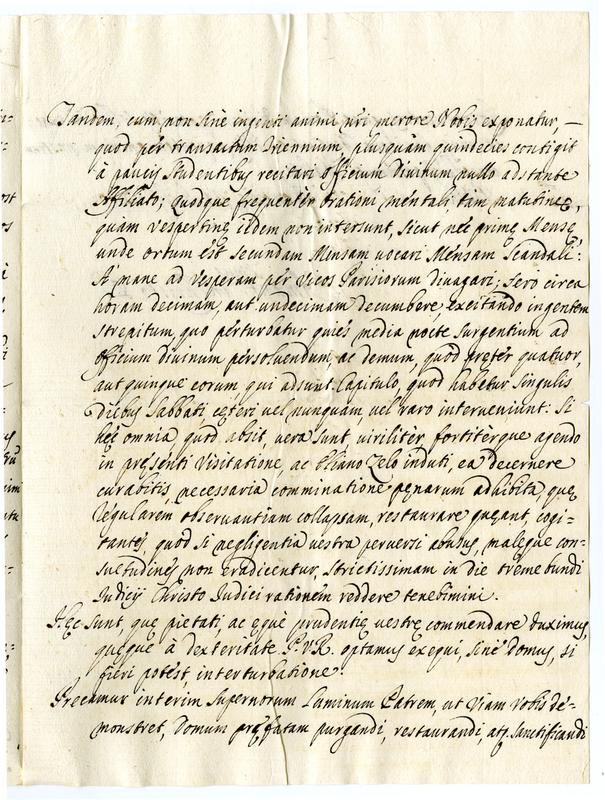 Tandem, cum non sine ingenti animi nri merore Nobis exponatur, —
quod per transactum triennium, plusquàm quindecies contigit
à paucis studentibus recitari officium divinum nullo adstante
Affiliato; quodque frequentèr orationi mentali, tam matutinę,
quàm vespertinę iidem non intersunt, sicut nec primę Mensę
unde ortum est secundam Mensam vocari Mensam scandali:
A mane ad vesperam per vicos Parisiorum divagari; sero circa
horam decimam, aut undecimam decumbere, excitando ingentem
strepitum, quo perturbatur quies media nocte surgentium ad
officium divinum persoluendum, ac demum, quod pręter quatuor,
aut quinque eorum, qui adsunt Capitulo, quod habetur singulis
diebus sabbati cęteri vel nunquàm, vel raro interveniunt: si
hęc omnia, quod absit, vera sunt, viriliter, fortiterque agendo
in pręsenti Visitatione, ac Eliano Zelo induti, ea decernere
curabitis, necessaria comminatione pęnarum adhibita, quę
regularem observantiam collapsam, restaurare queant, cogi-
tantes, quod si negligentia vestra perversi abusus, malęque con-
suetudines non eradicentur, strictissimam in die tremebundi
Judicij Christo Judici rationem reddere tenebimini.
Hęc sunt, quę pietati, ac equè prudentię vestrę commendare duximus,
quęque à dexteritate P.V.R. optamus exequi, sine domus, si
fieri potest, interturbatione.
Precamur interim supernorum Luminum Patrem, ut viam vobis de-
monstret, domum pręfatam purgandi, restaurandi, atq. sanctificandi